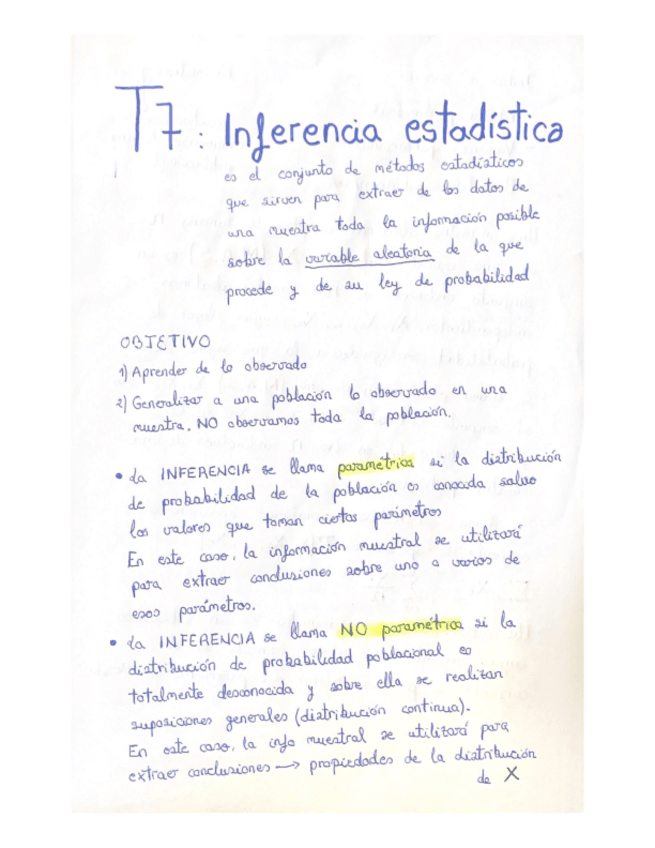 T7: Inferencia estadística
es el conjunto de métodos estadísticos
que sirven para extraer de los datos de
una muestra toda la información posible
sobre la variable aleatoria de la que
procede y de su ley de probabilidad
OBJETIVO
1) Aprender de lo observado
2) Generalizar a una población lo observado en una
muestra. NO observamos toda la población.
• La INFERENCIA se llama paramétrica si la distribución
de probabilidad de la población es conocida salvo
los valores que toman ciertos parámetros
En este caso, la información muestral se utilizará
para extraer conclusiones sobre uno o varios de
esos parámetros.
• La INFERENCIA se llama NO paramétrica si la
distribución de probabilidad poblacional es
totalmente desconocida y sobre ella se realizan
suposiciones generales (distribución continua).
En este caso, la info muestral se utilizará para
extraer conclusiones → propiedades de la distribución
de X